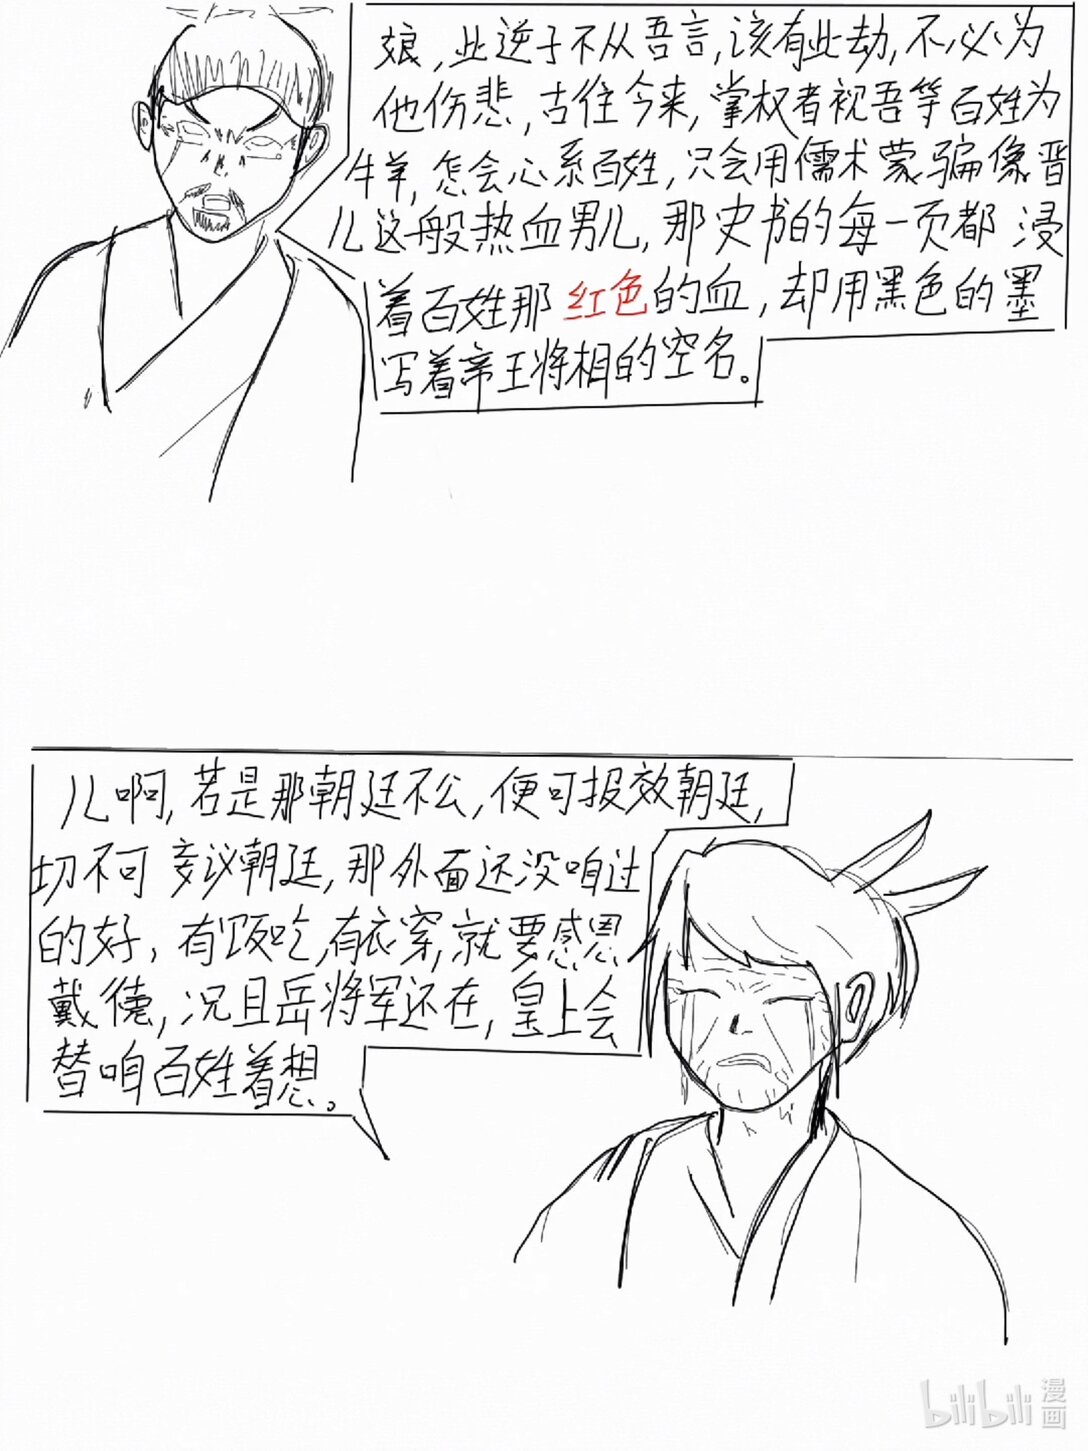 娘，此逆子不从吾言，该有此劫，不必为
他伤悲，古往今来，掌权者视吾等百姓为
牛羊，怎会心系百姓，只会用儒术蒙骗像晋
儿这般热血男儿，那史书的每一页都浸
着百姓那红色的血，却用黑色的墨
写着帝王将相的空名。
儿啊，若是那朝廷不公，便可报效朝廷，
切不可妄议朝廷，那外面还没咱过
的好，有饭吃，有衣穿，就要感恩
戴德，况且岳将军还在，皇上会
替咱百姓着想。
bilibili漫画